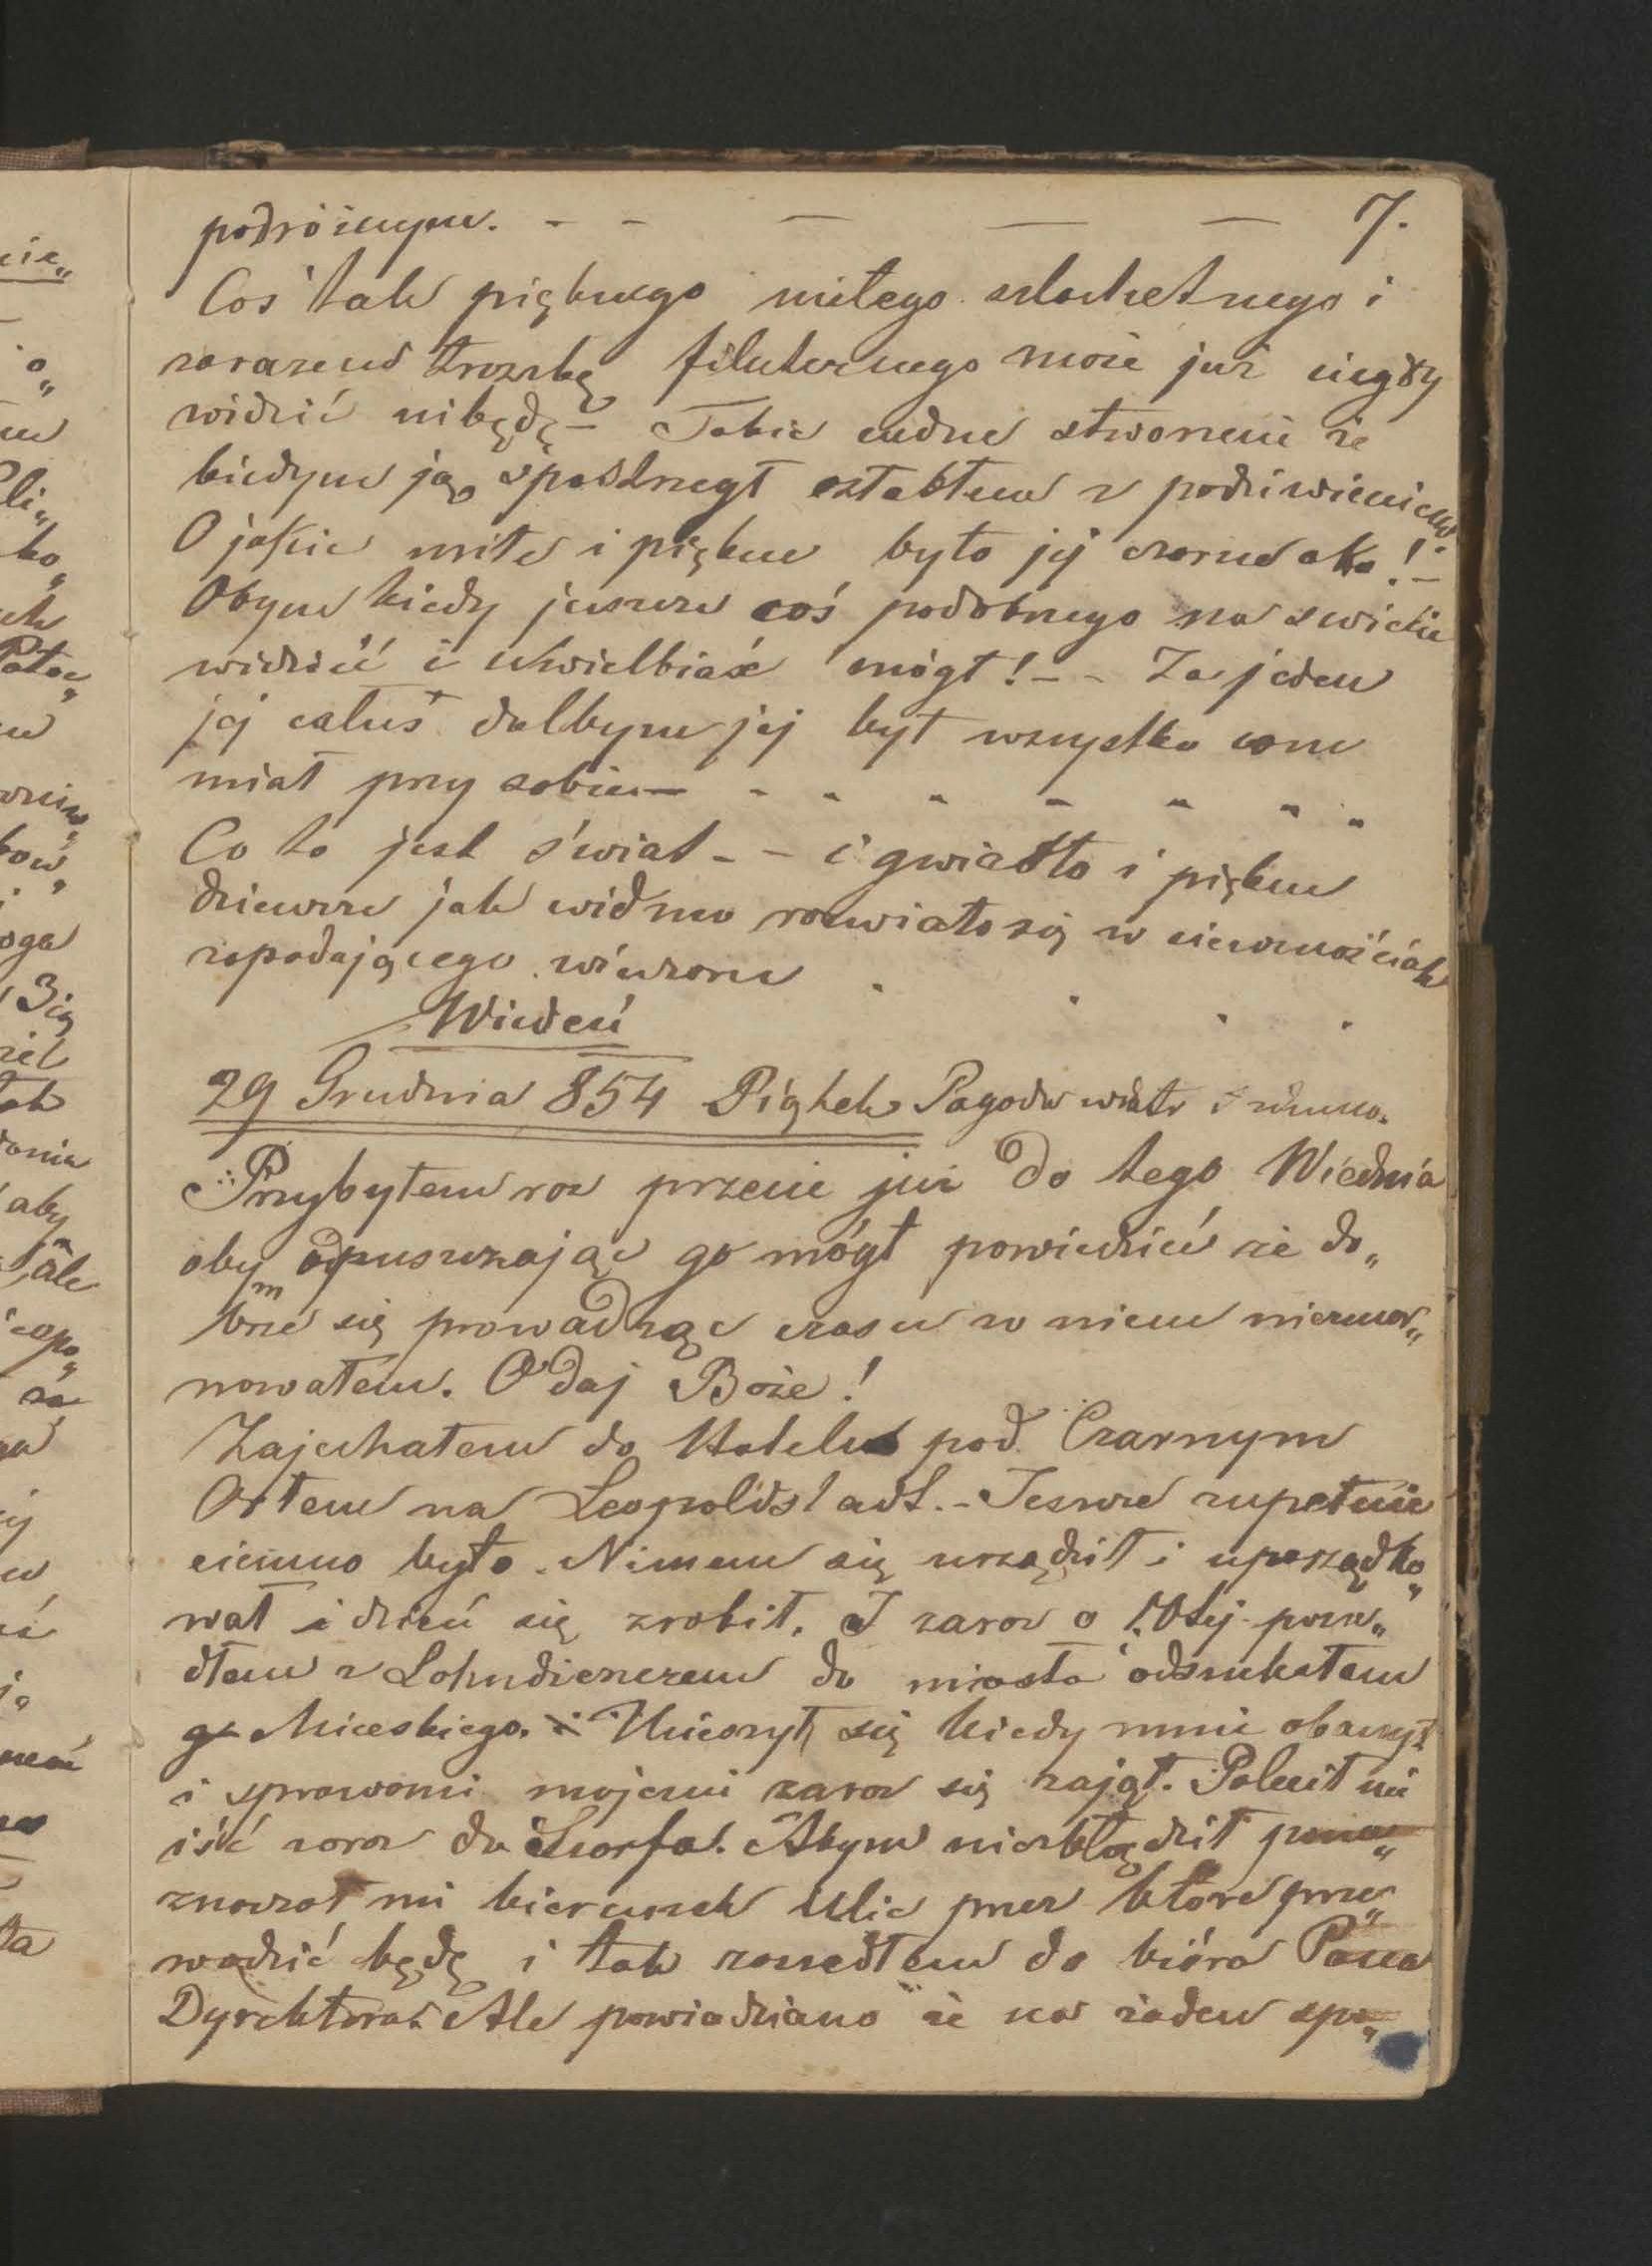 podróżnym. - - — — — 7.
Coś tak pięknego miłego szlachetnego i
zarazem troszkę filuternego może już nigdy
widzić nibędę - Takie cudne stworzenie że
kiedym ją spostrzegł osłabłem z podziwieniem.
O jakie miłe i piękne było jej czarne oko! -
Obym kiedy jeszcze coś podobnego na świecie
widzieć i uwielbiać mógł! - - Za jeden
jej całus dałbym jej był wszystko com
miał przy sobie — - - - - - - -
Co to jest świat - - i gwiazdka i piękne
dziewcze jak widmo rozwiało się w ciemnościach
zapadającego wieczoru . . . .
Wiedeń
29 Grudnia 854 Piątek Pagoda wiatr i zimno.
Przybyłem raz przecie już do tego Wiednia
obym opuszczając go mógł powiedzieć że do„
brze się prowadząc czasu w niem niezmar„
nowałem. O daj Boże!
Zajechałem do Hotelu pod Czarnym
Orłem na Leopoldstadt. - Jeszcze zupełnie
ciemno było. Nimem się urządził i uporządko„
wał i dzień się zrobił. I zaraz o 10tej posze„
dłem z Lohndienerem do miasta odszukałem
Miceskiego. Ucieszył się kiedy mnie obaczył
i sprawami mojemi zaraz się zajął. Polecił mi
iść zaraz do Skorfa. Abym niezbłądził pona„
znaczał mi kierunek ulic przez które prze„
wodzić będę i tak zaszedłem do bióra Pana
Dyrektora. Ale powiedziano że na żaden spo„